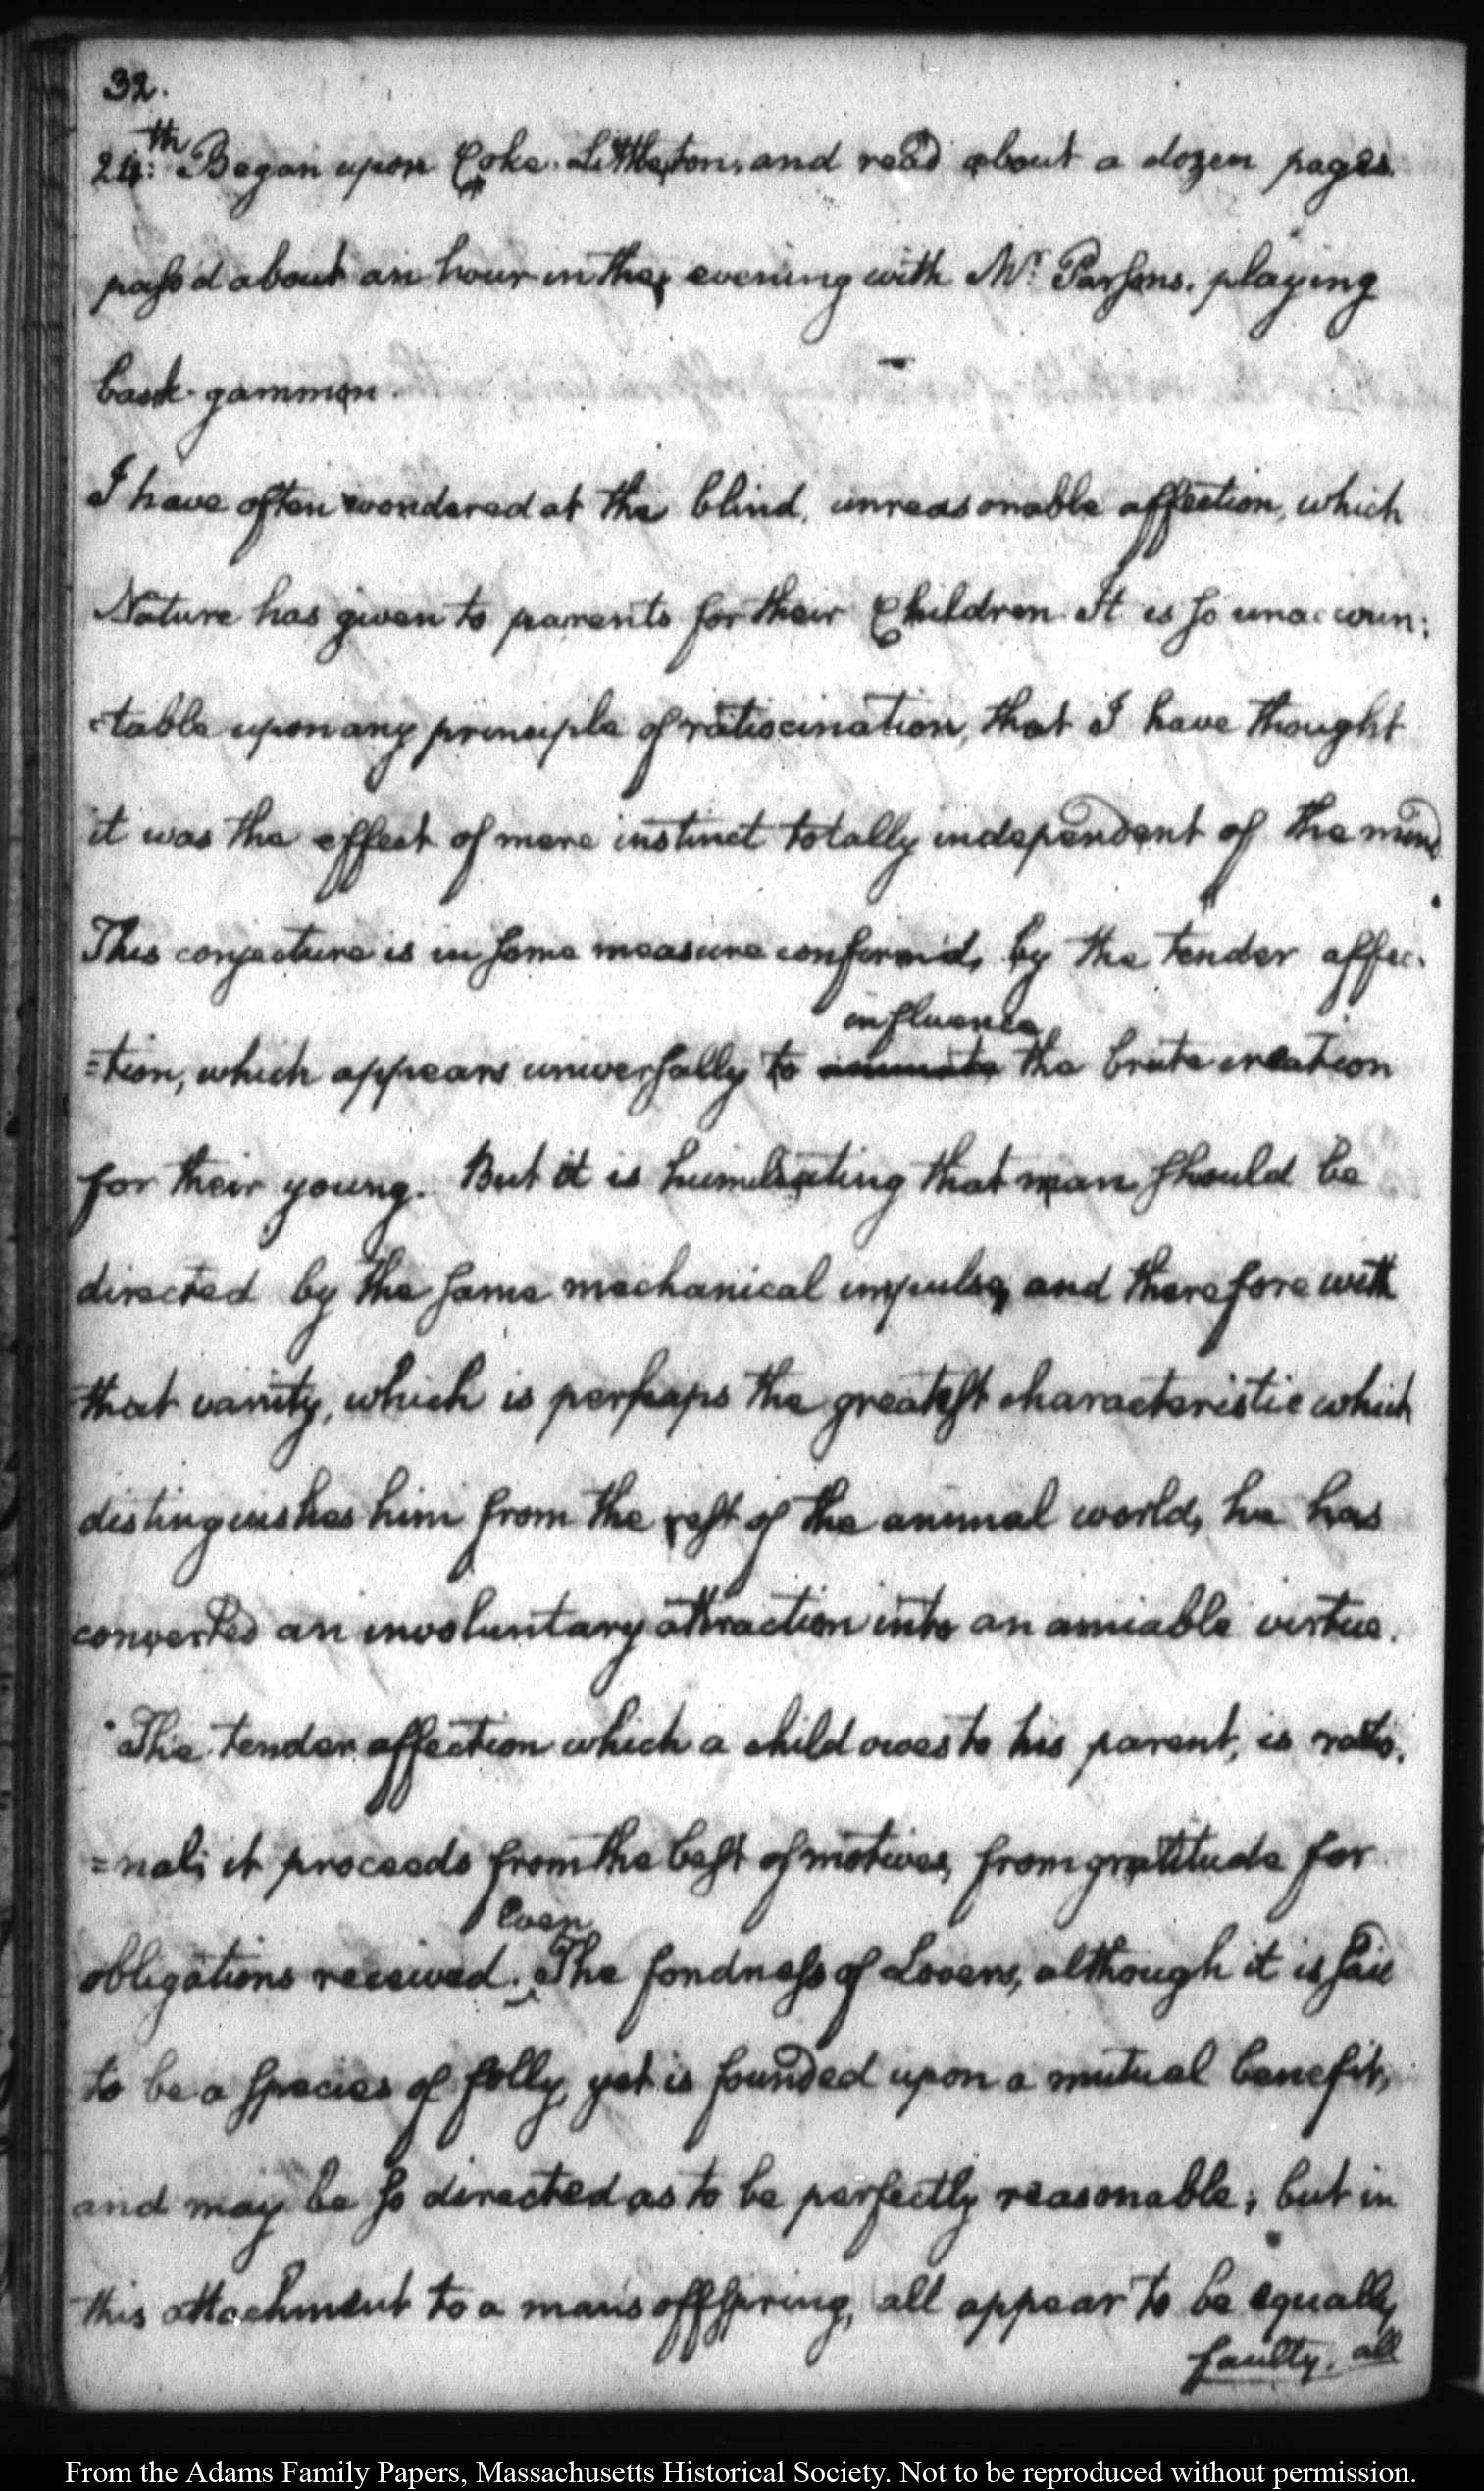 32.
24:th Began upon Coke-Littleton, and read about a dozen pages
pass'd about an hour in the evening with Mr. Parsons, playing
back-gammon.
I have often wondered at the blind, unreasonable affection, which
Nature has given to parents for their Children. It is so unaccoun:
=table upon any principle of ratiocination, that I have thought
it was the effect of mere instinct totally independent of the mind.
This conjecture is in some measure confirm'd, by the tender affec-
influence
=tion, which appears universally to animate the brute creation
for their young. But it is humiliating that man should be
directed by the same mechanical impulse, and therefore with
that vanity, which is perhaps the greatest characteristic which
distinguishes him from the rest of the animal world, he has
converted an involuntary attraction into an amiable virtue.
The tender affection which a child owes to his parent, is ratio-
=nal; it proceeds from the best of motives, from gratitude for
Even
obligations received. The fondness of Lovers, although it is said
to be a species of folly, yet is founded upon a mutual benefit,
and may be so directed as to be perfectly reasonable; but in
this attachment to a man's offspring, all appear to be equally
faulty. all
From the Adams Family Papers, Massachusetts Historical Society. Not to be reproduced without permission.